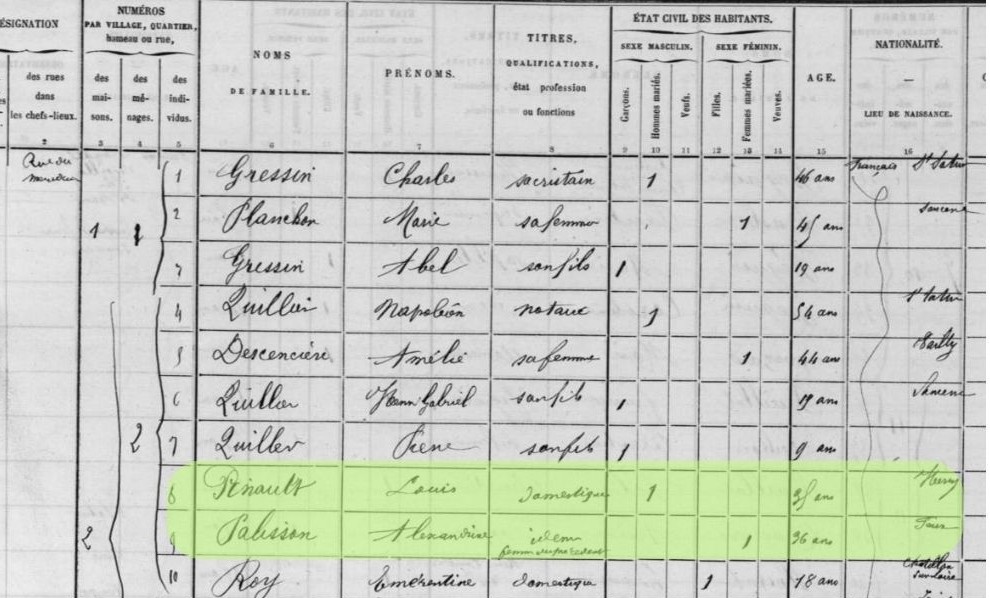 ÉSIGNATION
des rues
dans
les chefs-lieux.
2
NUMÉROS
PAR VILLAGE, QUARTIER,
hameau ou rue,
des
mai-
sons.
3
des
mé-
nages.
4
des
indi-
vidus.
5
NOMS
DE FAMILLE.
6
PRÉNOMS.
7
TITRES,
QUALIFICATIONS,
état profession
ou fonctions
8
ÉTAT CIVIL DES HABITANTS.
SEXE MASCULIN. SEXE FÉMININ.
Garçons. Hommes mariés. Veufs. Filles. Femmes mariées. Veuves.
9 10 11 12 13 14
AGE.
15
NATIONALITÉ.
—
LIEU DE NAISSANCE.
16
Rue du
1 Gressin Charles sacristain 1 46 ans français St Satur
1 1 2 Planchon Marie sa femme 1 45 ans
3 Gressin Abel son fils 1 19 ans
4 Napoléon 1 54 ans St Satur
5 Amélie sa femme 1 44 ans
6 Gabriel son fils 1 19 ans
2 7 son fils 1 9 ans
8 Louis Domestique 1 35 ans
2 9 Palisson Alexandrine idem 1 36 ans
femme du précédent
10 Roy Domestique 1 18 ans Chatillon
sur Loire